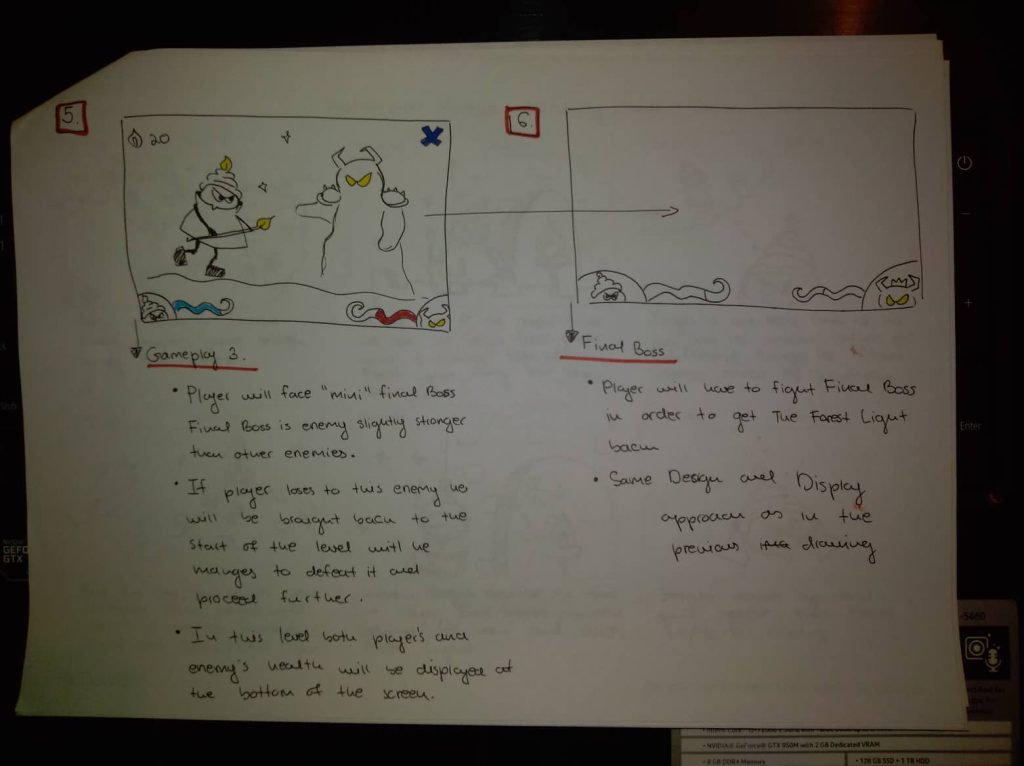 5.
20
Gameplay 3.
• Player will face "mini" final Boss
Final Boss is enemy slightly stronger
than other enemies.
• If player loses to this enemy he
will be braught back to the
start of the level until he
manges to defeat it and
proceed further.
• In this level both player's and
enemy's health will be displayed at
the bottom of the screen.
6.
Final Boss
• Player will have to fight Final Boss
in order to get The Forest Light
back
• Same Design and Display
approach as in the
previous drawing
Enter
Shift
GEFO
GTX
-5660
• NVIDIA® GeForce® GTX 950M with 2 GB Dedicated VRAM
• 8 GB DDR4 Memory
• 128 GB SSD + 1 TB HDD